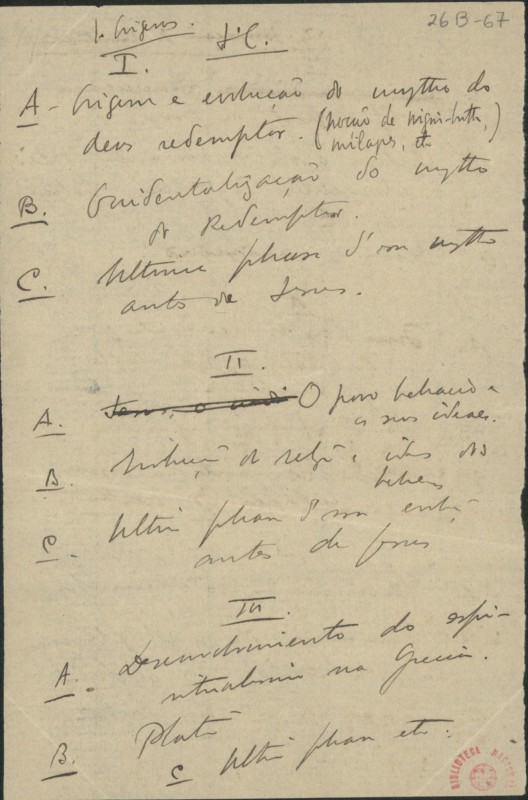 26B-67
1. Origens. J.C.
I.
A - Origem e evolução do mytho do
deus redemptor. (noção de
milagres, etc
B. Occidentalização do mytho
do Redemptor.
C. Ultima phase d'esse mytho
antes de Jesus.
II.
A. O povo hebraico e
as suas ideas.
B. Evolução da relig. e ideas dos
hebreus
C. Ultima phase d'essa evoluç.
antes de Jesus
III.
A. Desenvolvimento do espi-
ritualismo na Grecia.
B. Platão
C Ultima phase etc.
BIBLIOTECA NACIONAL